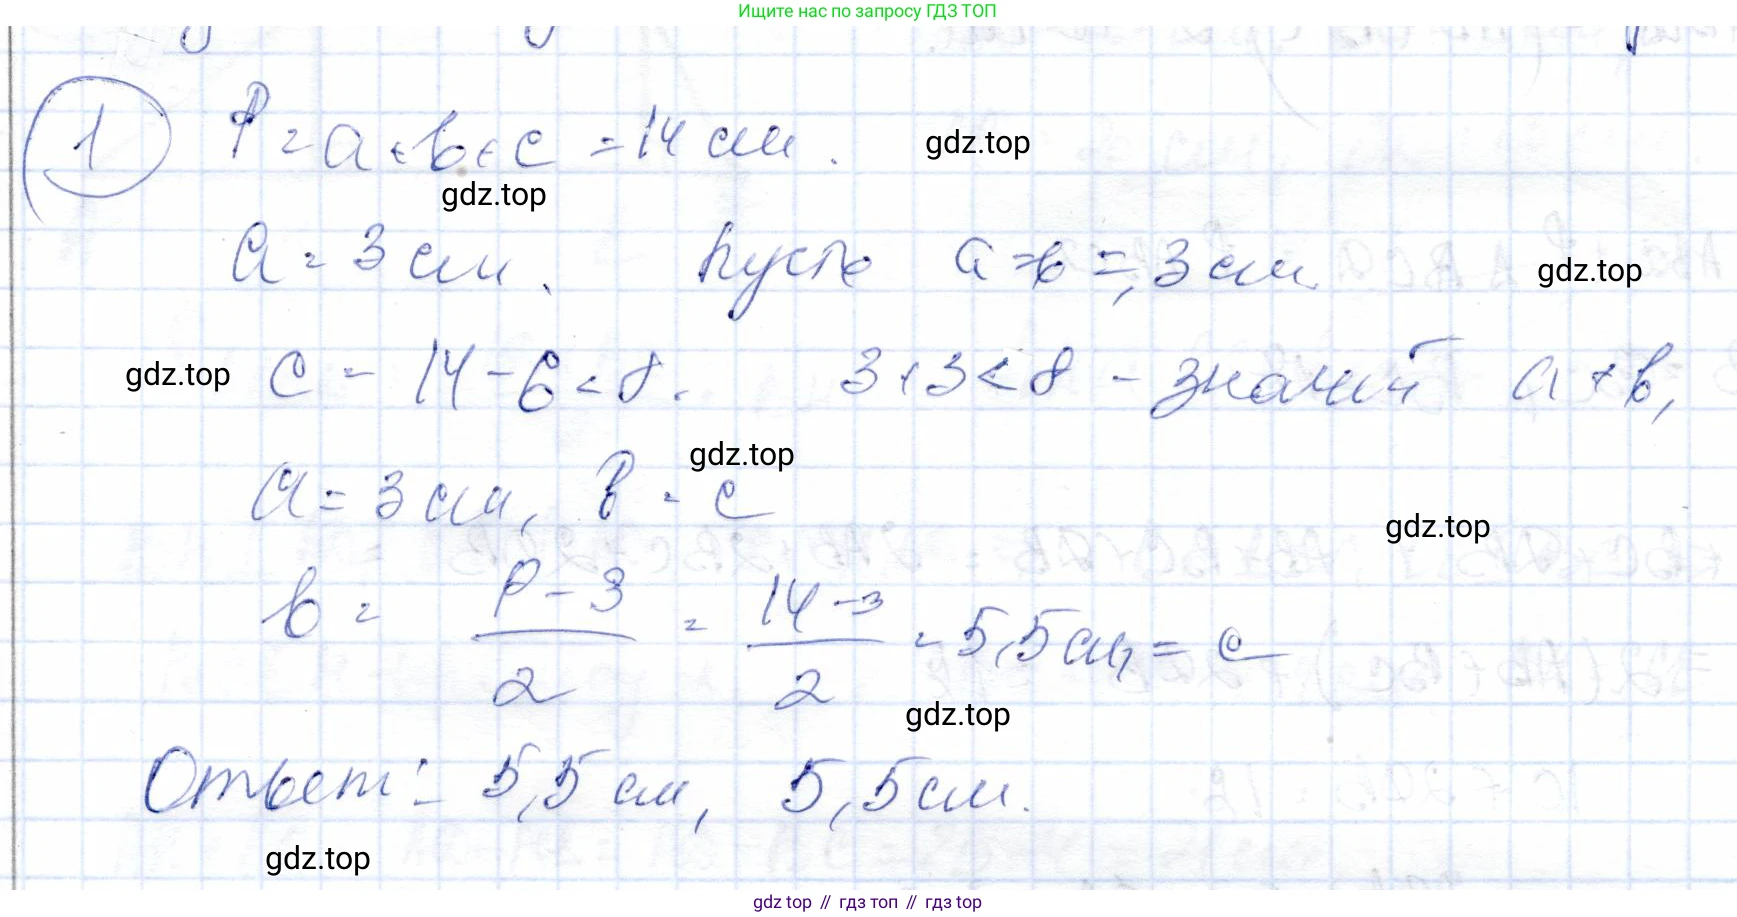 Ищите нас по запросу ГДЗ ТОП
1 P = a + b + c = 14 см.
gdz.top
gdz.top
a = 3 см. Пусть a = b = 3 см
gdz.top
c = 14 - 6 = 8. 3 + 3 < 8 - значит a ≠ b,
gdz.top
gdz.top
a = 3 см, b = c
gdz.top
b = P - 3 / 2 = 14 - 3 / 2 = 5,5 см = c
gdz.top
Ответ: 5,5 см, 5,5 см.
gdz.top
gdz top // гдз топ // гдз top